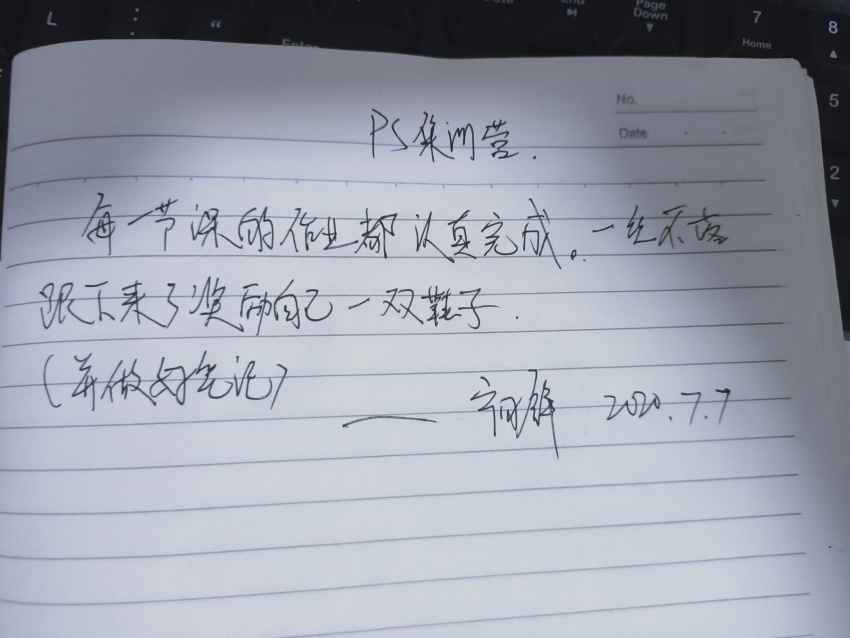 L
:
;
“
End
Page
Down
7
Home
8
5
2
No.
Date
PS集训营.
每一节课的作业都认真完成。一丝不落
跟下来了奖励自己一双鞋子.
(并做好笔记)
—— 2020.7.7